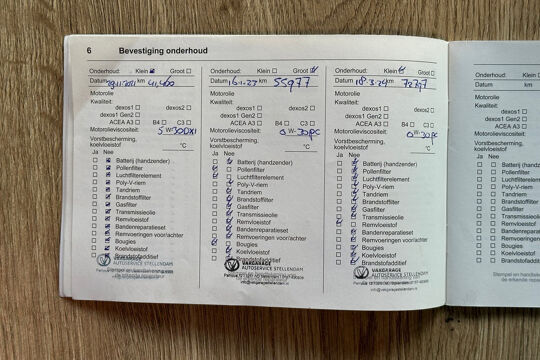 6 Bevestiging onderhoud
Onderhoud: Klein Groot
Datum 19-11-2021 km 41,400
Motorolie
Kwaliteit:
dexos1 dexos2
dexos1 Gen2
ACEA A3 B4 C3
Motorolieviscositeit: 5 W
Vorstbescherming, koelvloeistof °C
Ja Nee
Batterij (handzender)
Pollenfilter
Luchtfilterelement
Poly-V-riem
Tandriem
Brandstoffilter
Gasfilter
Transmissieolie
Remvloeistof
Bandenreparatieset
Remvoeringen voor/achter
Bougies
Koelvloeistof
Brandstofadditief
AUTOSERVICE STELLENDAM
Onderhoud: Klein Groot
Datum 16-1-23 km 55977
Motorolie
Kwaliteit:
dexos1 dexos2
dexos1 Gen2
ACEA A3 B4 C3
Motorolieviscositeit: 0 W-30
Vorstbescherming, koelvloeistof °C
Ja Nee
Batterij (handzender)
Pollenfilter
Luchtfilterelement
Poly-V-riem
Tandriem
Brandstoffilter
Gasfilter
Transmissieolie
Remvloeistof
Bandenreparatieset
Remvoeringen voor/achter
Bougies
Koelvloeistof
Brandstofadditief
VAKGARAGE
AUTOSERVICE STELLENDAM
info@vakgaragestellendam.nl
Onderhoud: Klein Groot
Datum 18-3-24 km
Motorolie
Kwaliteit:
dexos1 dexos2
dexos1 Gen2
ACEA A3 B4 C3
Motorolieviscositeit: 0 W-30
Vorstbescherming, koelvloeistof °C
Ja Nee
Batterij (handzender)
Pollenfilter
Luchtfilterelement
Poly-V-riem
Tandriem
Brandstoffilter
Gasfilter
Transmissieolie
Remvloeistof
Bandenreparatieset
Remvoeringen voor/achter
Bougies
Koelvloeistof
Brandstofadditief
VAKGARAGE
AUTOSERVICE STELLENDAM
info@vakgaragestellendam.nl
Onderhoud: Klein
Datum km
Motorolie
Kwaliteit:
dexos1
dexos1 Gen2
ACEA A3
Motorolieviscositeit:
Vorstbescherming, koelvloeistof
Ja Nee
Batterij (handzender)
Pollenfilter
Luchtfilterelement
Poly-V-riem
Tandriem
Brandstoffilter
Gasfilter
Transmissieolie
Remvloeistof
Bandenreparatieset
Remvoeringen
Bougies
Koelvloeistof
Brandstofadditief
Stempel en handtekening
de erkende